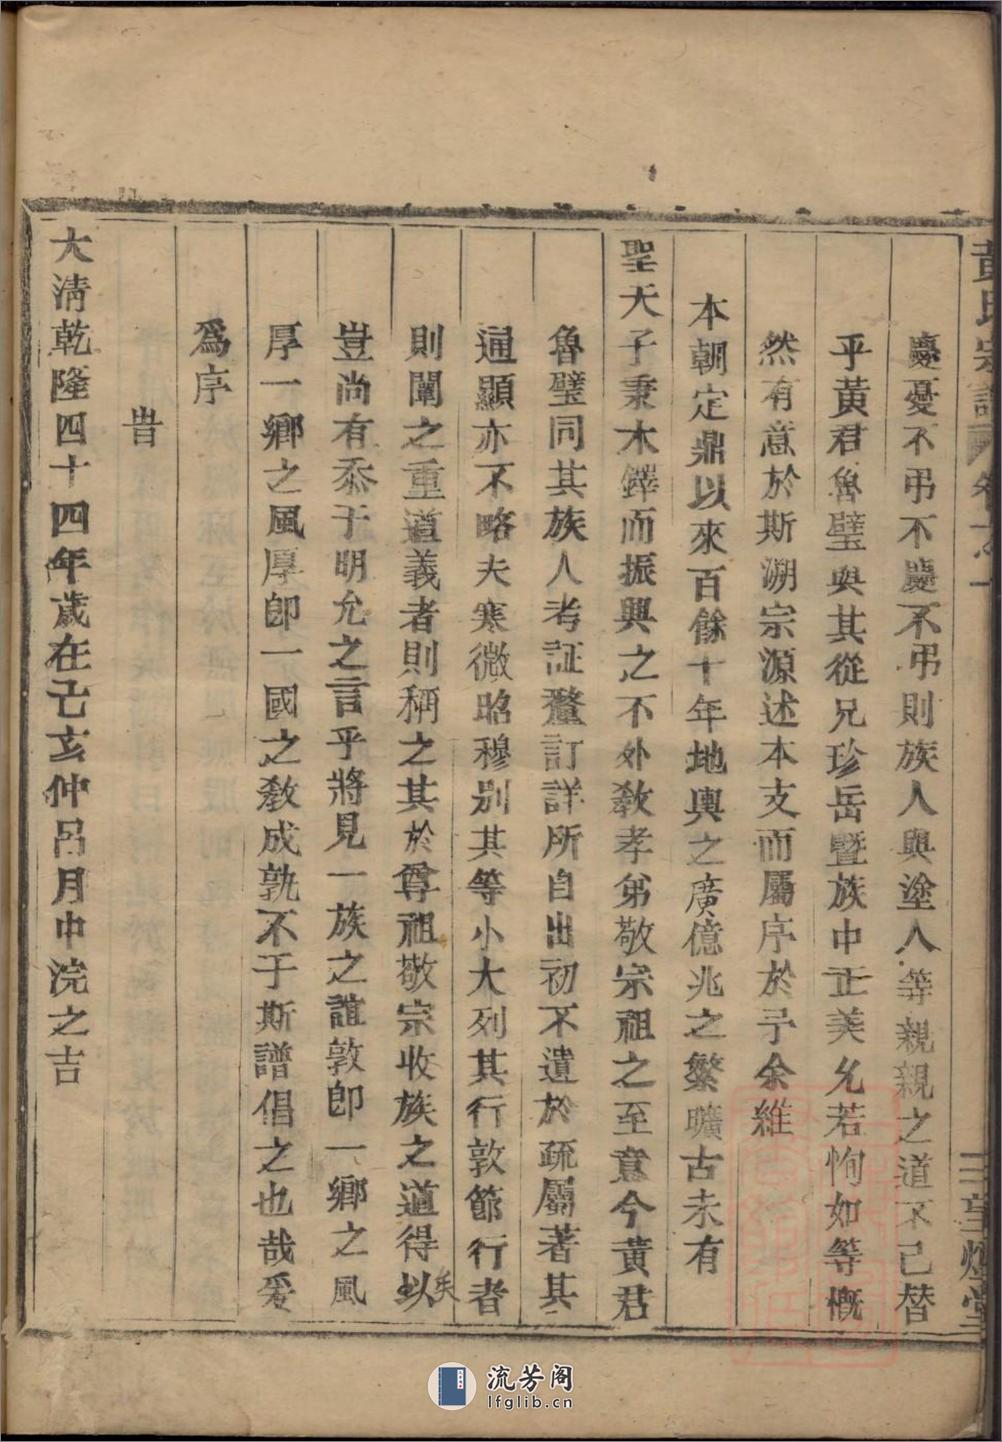 黃氏宗譜
慶憂不弔不慶不弔則族人與塗人等親親之道不已替
乎黃君魯璧與其從兄珍岳暨族中正美允若恂如等慨
然有意於斯溯宗源述本支而屬序於予余維
本朝定鼎以來百餘十年地輿之廣億兆之繁曠古未有
聖天子秉木鐸而振興之不外敎孝弟敬宗祖之至意今黃君
魯璧同其族人考証釐訂詳所自出初不遺於疏屬著其
通顯亦不略夫寒微昭穆別其等小大列其行敦節行者
則闡之重道義者則稱之其於尊祖敬宗收族之道得以
矣
豈尚有忝于明允之言乎將見一族之誼敦卽一鄉之風
厚一鄉之風厚卽一國之敎成孰不于斯譜倡之也哉爰
爲序
旹
大清乾隆四十四年歲在己亥仲呂月中浣之吉
流芳阁
lfglib.cn